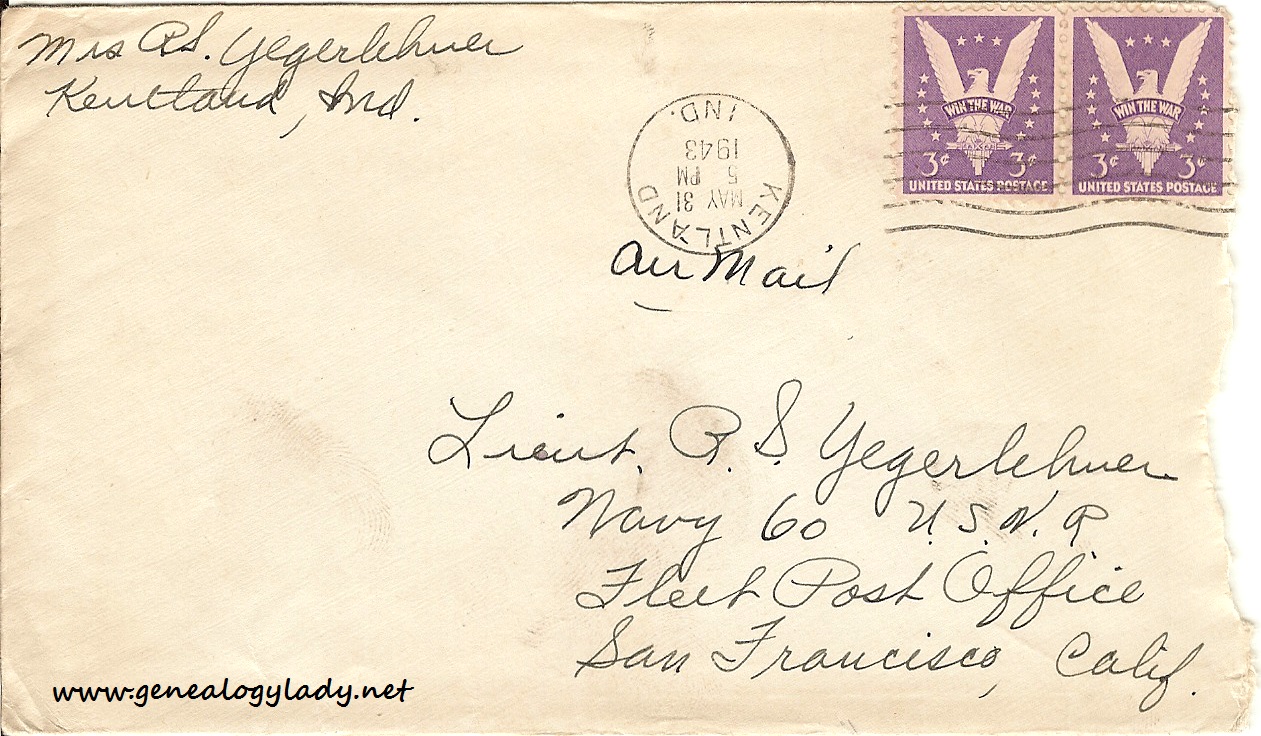 Mrs R.S. Yegerlehner
Kentland, Ind.
KENTLAND
MAY 31
5 PM
1943
IND.
WIN THE WAR
3¢ 3¢
UNITED STATES POSTAGE
WIN THE WAR
3¢ 3¢
UNITED STATES POSTAGE
Air Mail
Lieut. R. S. Yegerlehner
Navy 60 U.S.N.R.
Fleet Post Office
San Francisco, Calif.
www.genealogylady.net